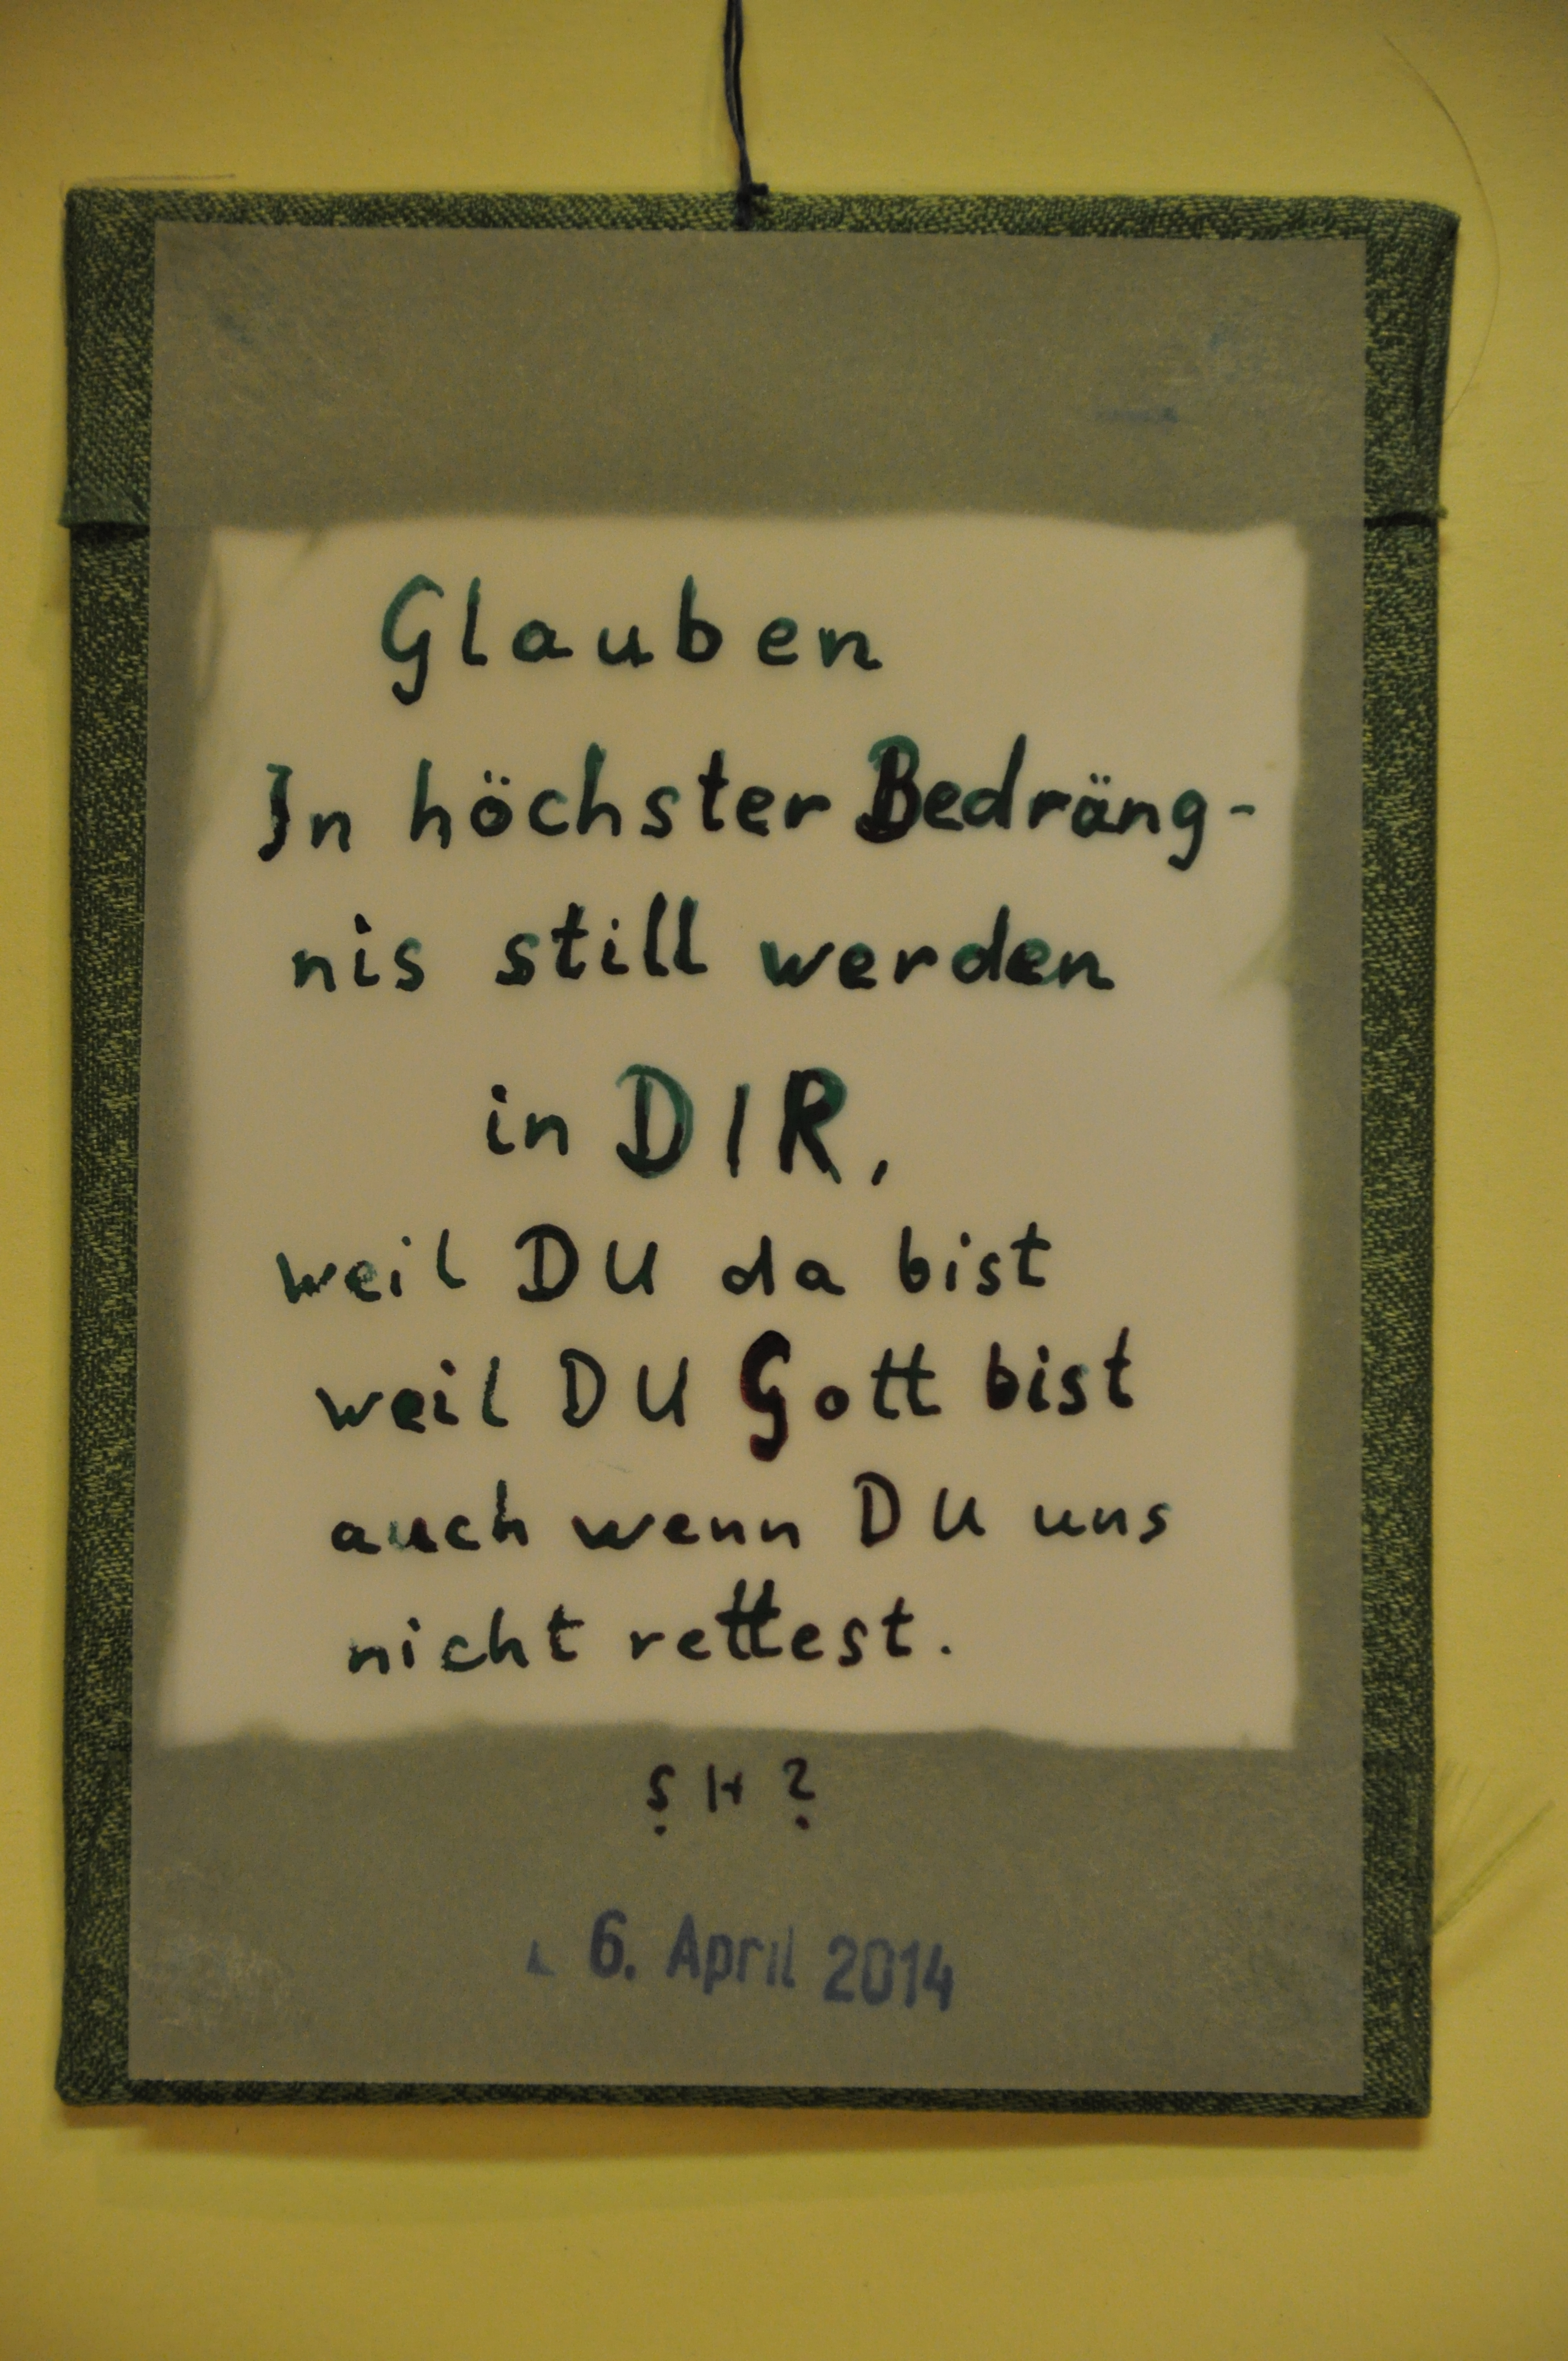 Glauben
In höchster Bedräng-
nis still werden
in DIR,
weil DU da bist
weil DU Gott bist
auch wenn DU uns
nicht rettest.
S H ?
6. April 2014